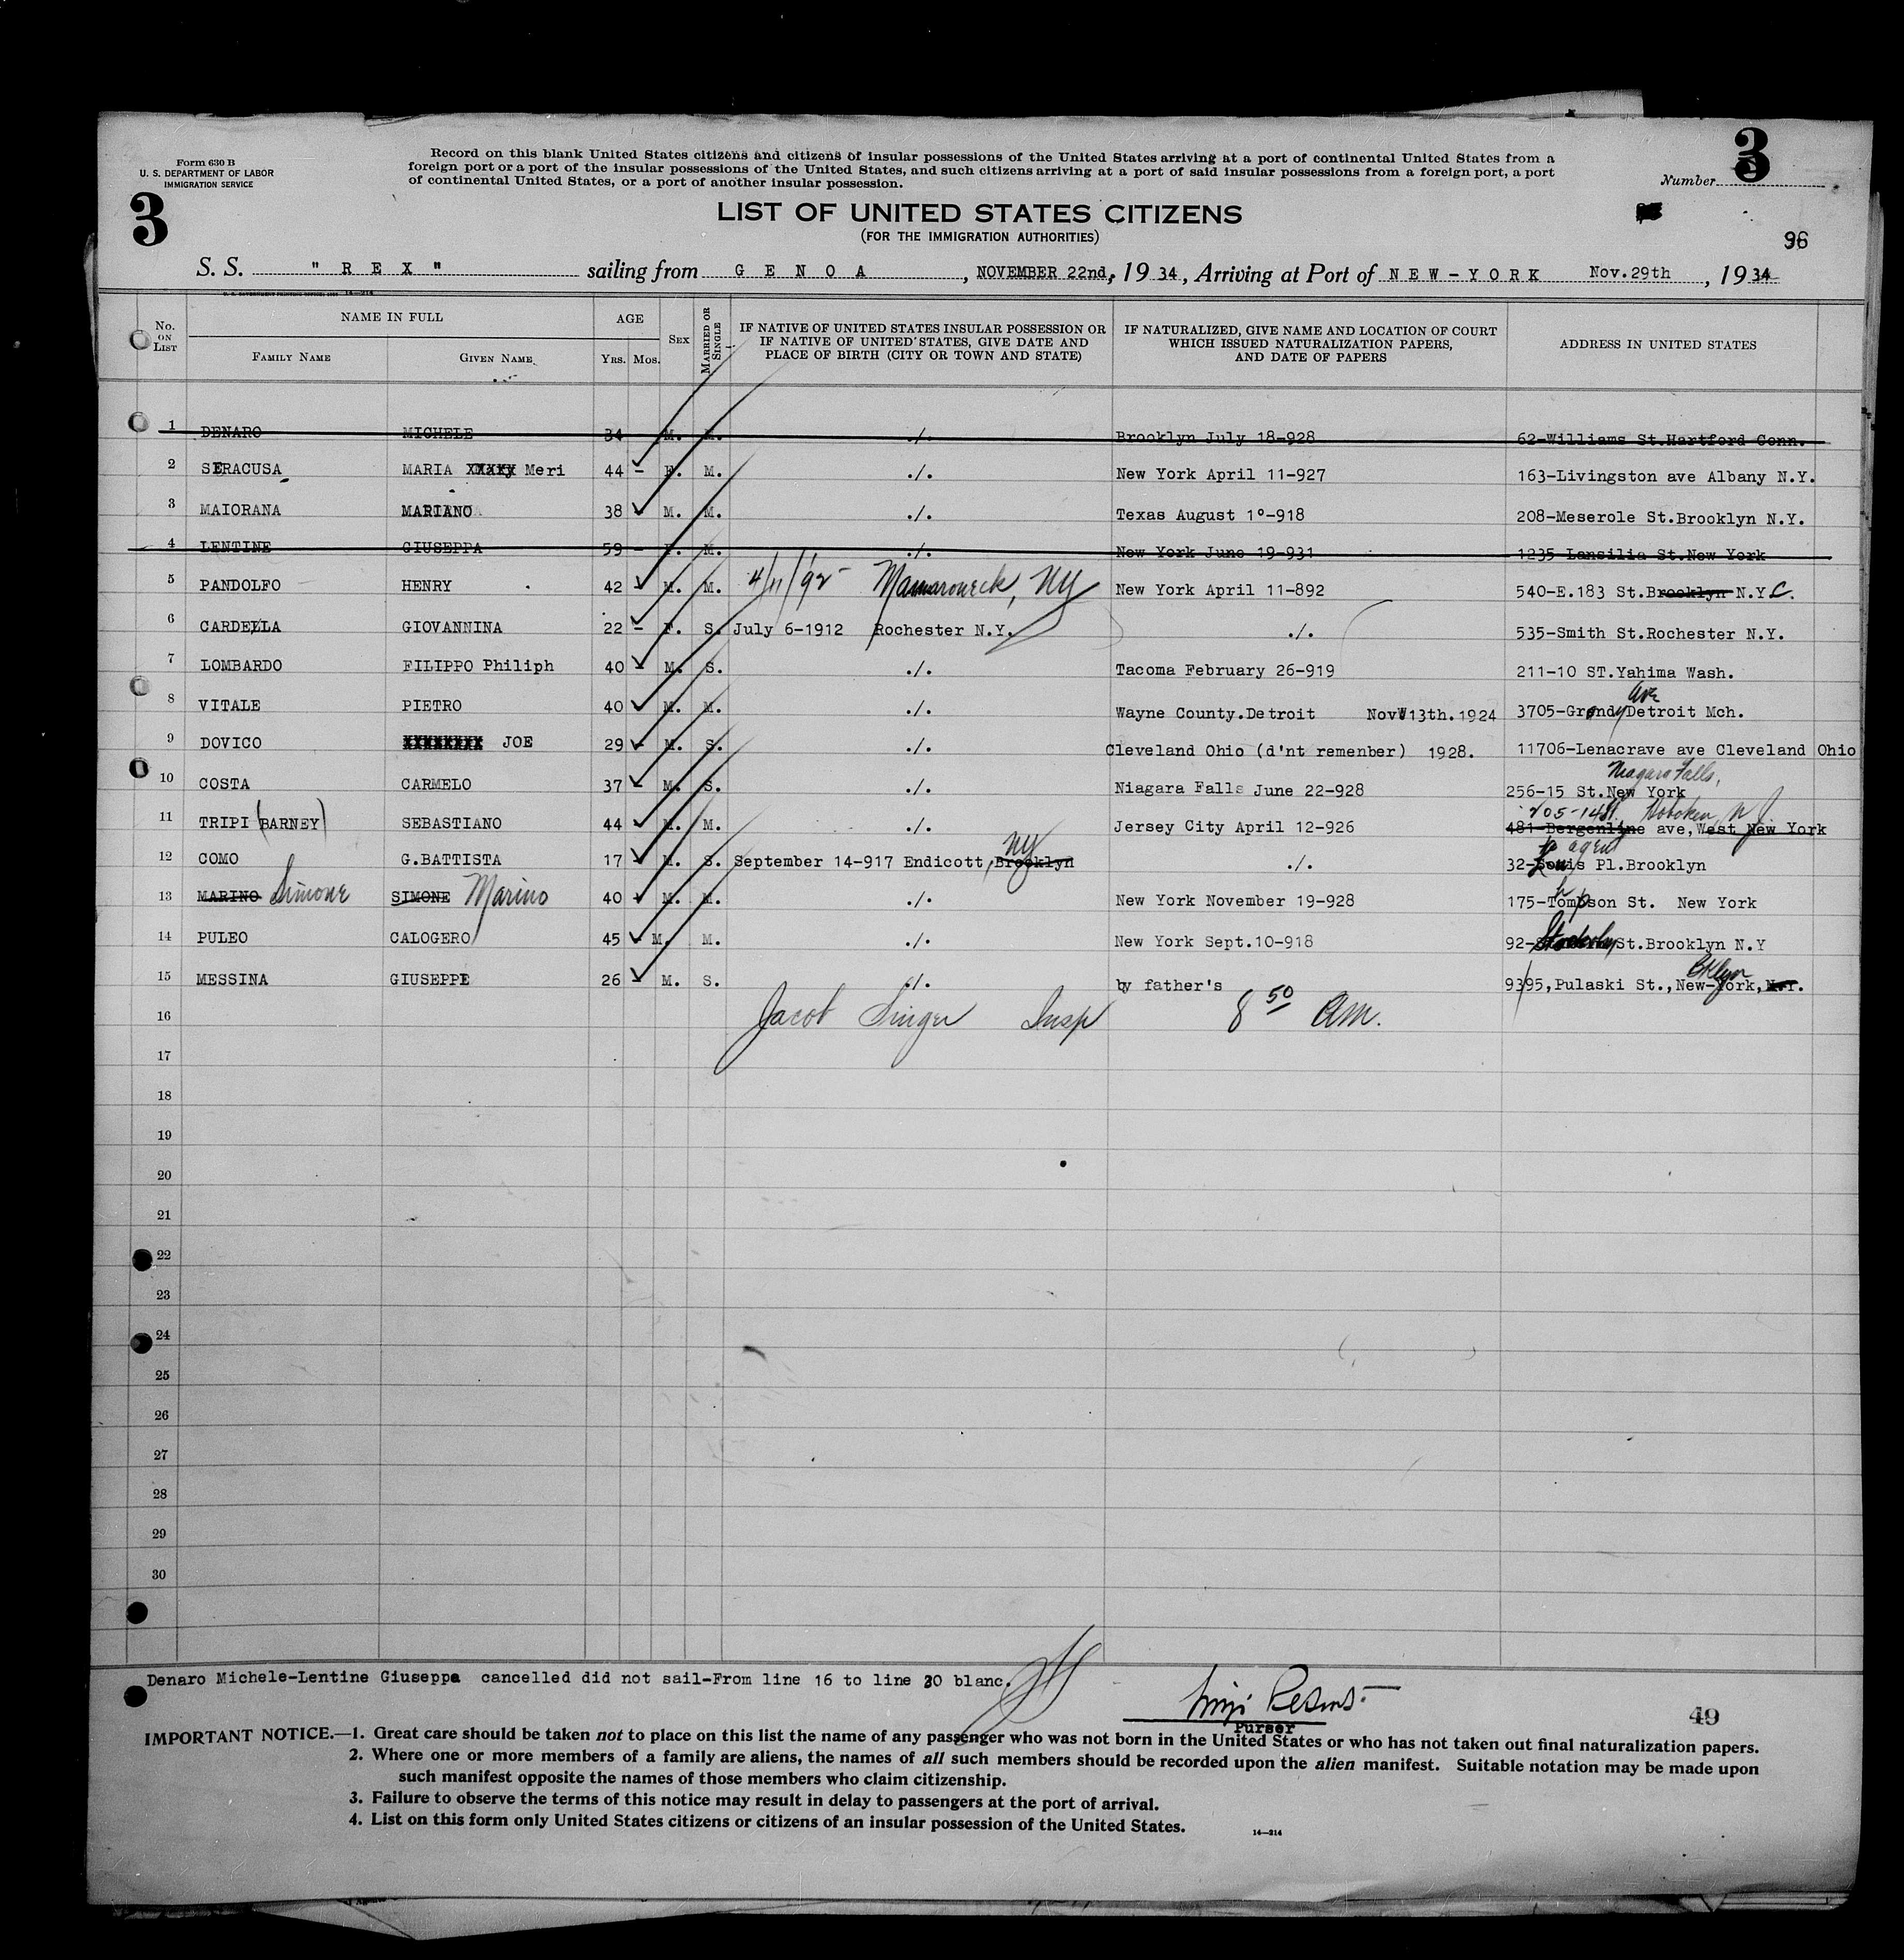 Form 630 B
U. S. DEPARTMENT OF LABOR
IMMIGRATION SERVICE
3
Record on this blank United States citizens and citizens of insular possessions of the United States arriving at a port of continental United States from a
foreign port or a port of the insular possessions of the United States, and such citizens arriving at a port of said insular possessions from a foreign port, a port
of continental United States, or a port of another insular possession.
Number 3
LIST OF UNITED STATES CITIZENS
(FOR THE IMMIGRATION AUTHORITIES)
96
S. S. " R E X " sailing from G E N O A , NOVEMBER 22nd, 19 34, Arriving at Port of N E W - Y O R K Nov.29th , 19 34
No. ON LIST
NAME IN FULL
FAMILY NAME
GIVEN NAME
AGE
YRS. MOS.
SEX
MARRIED OR SINGLE
IF NATIVE OF UNITED STATES INSULAR POSSESSION OR
IF NATIVE OF UNITED STATES, GIVE DATE AND
PLACE OF BIRTH (CITY OR TOWN AND STATE)
IF NATURALIZED, GIVE NAME AND LOCATION OF COURT
WHICH ISSUED NATURALIZATION PAPERS,
AND DATE OF PAPERS
ADDRESS IN UNITED STATES
1 DENARO MICHELE 34 M. M. ./. Brooklyn July 18-928 62-Williams St.Hartford Conn.
2 SERACUSA MARIA XXXXX Meri 44 - F. M. ./. New York April 11-927 163-Livingston ave Albany N.Y.
3 MAIORANA MARIANO 38 M. M. ./. Texas August 1º-918 208-Meserole St.Brooklyn N.Y.
4 LENTINE GIUSEPPA 59 - F. M. ./. New York June 19-931 1235 Lansilia St.New York
5 PANDOLFO HENRY 42 M. M. 4/11/92 Mamaroneck, NY New York April 11-892 540-E.183 St.Brooklyn N.Y C.
6 CARDELLA GIOVANNINA 22 - F. S. July 6-1912 Rochester N.Y. ./. 535-Smith St.Rochester N.Y.
7 LOMBARDO FILIPPO Philiph 40 - M. S. ./. Tacoma February 26-919 211-10 ST.Yahima Wash.
8 VITALE PIETRO 40 M. M. ./. Wayne County.Detroit Nov 13th.1924 3705-Grandy Ave Detroit Mch.
9 DOVICO XXXXXXXX JOE 29 - M. S. ./. Cleveland Ohio (d'nt remenber) 1928. 11706-Lenacrave ave Cleveland Ohio
10 COSTA CARMELO 37 - M. S. ./. Niagara Falls June 22-928 256-15 St.New York Niagara Falls,
11 TRIPI (BARNEY) SEBASTIANO 44 - M. M. ./. Jersey City April 12-926 481-Bergenline ave,West New York 205-14St. Hoboken, N J
12 COMO G.BATTISTA 17 - M. S. September 14-917 Endicott, Brooklyn NY ./. 32- Pl.Brooklyn
13 MARINO Simone SIMONE Marino 40 M. M. ./. New York November 19-928 175-Tompson St. New York
14 PULEO CALOGERO 45 - M. M. ./. New York Sept.10-918 92- St.Brooklyn N.Y
15 MESSINA GIUSEPPE 26 - M. S. ./. by father's 9395,Pulaski St.,New-York,N.Y. Bklyn
16 Jacob Singer Insp 8 50 AM.
17
18
19
20
21
22
23
24
25
26
27
28
29
30
Denaro Michele-Lentine Giuseppa cancelled did not sail-From line 16 to line 30 blanc.
Purser
49
IMPORTANT NOTICE.—1. Great care should be taken not to place on this list the name of any passenger who was not born in the United States or who has not taken out final naturalization papers.
2. Where one or more members of a family are aliens, the names of all such members should be recorded upon the alien manifest. Suitable notation may be made upon
such manifest opposite the names of those members who claim citizenship.
3. Failure to observe the terms of this notice may result in delay to passengers at the port of arrival.
4. List on this form only United States citizens or citizens of an insular possession of the United States.
14—214